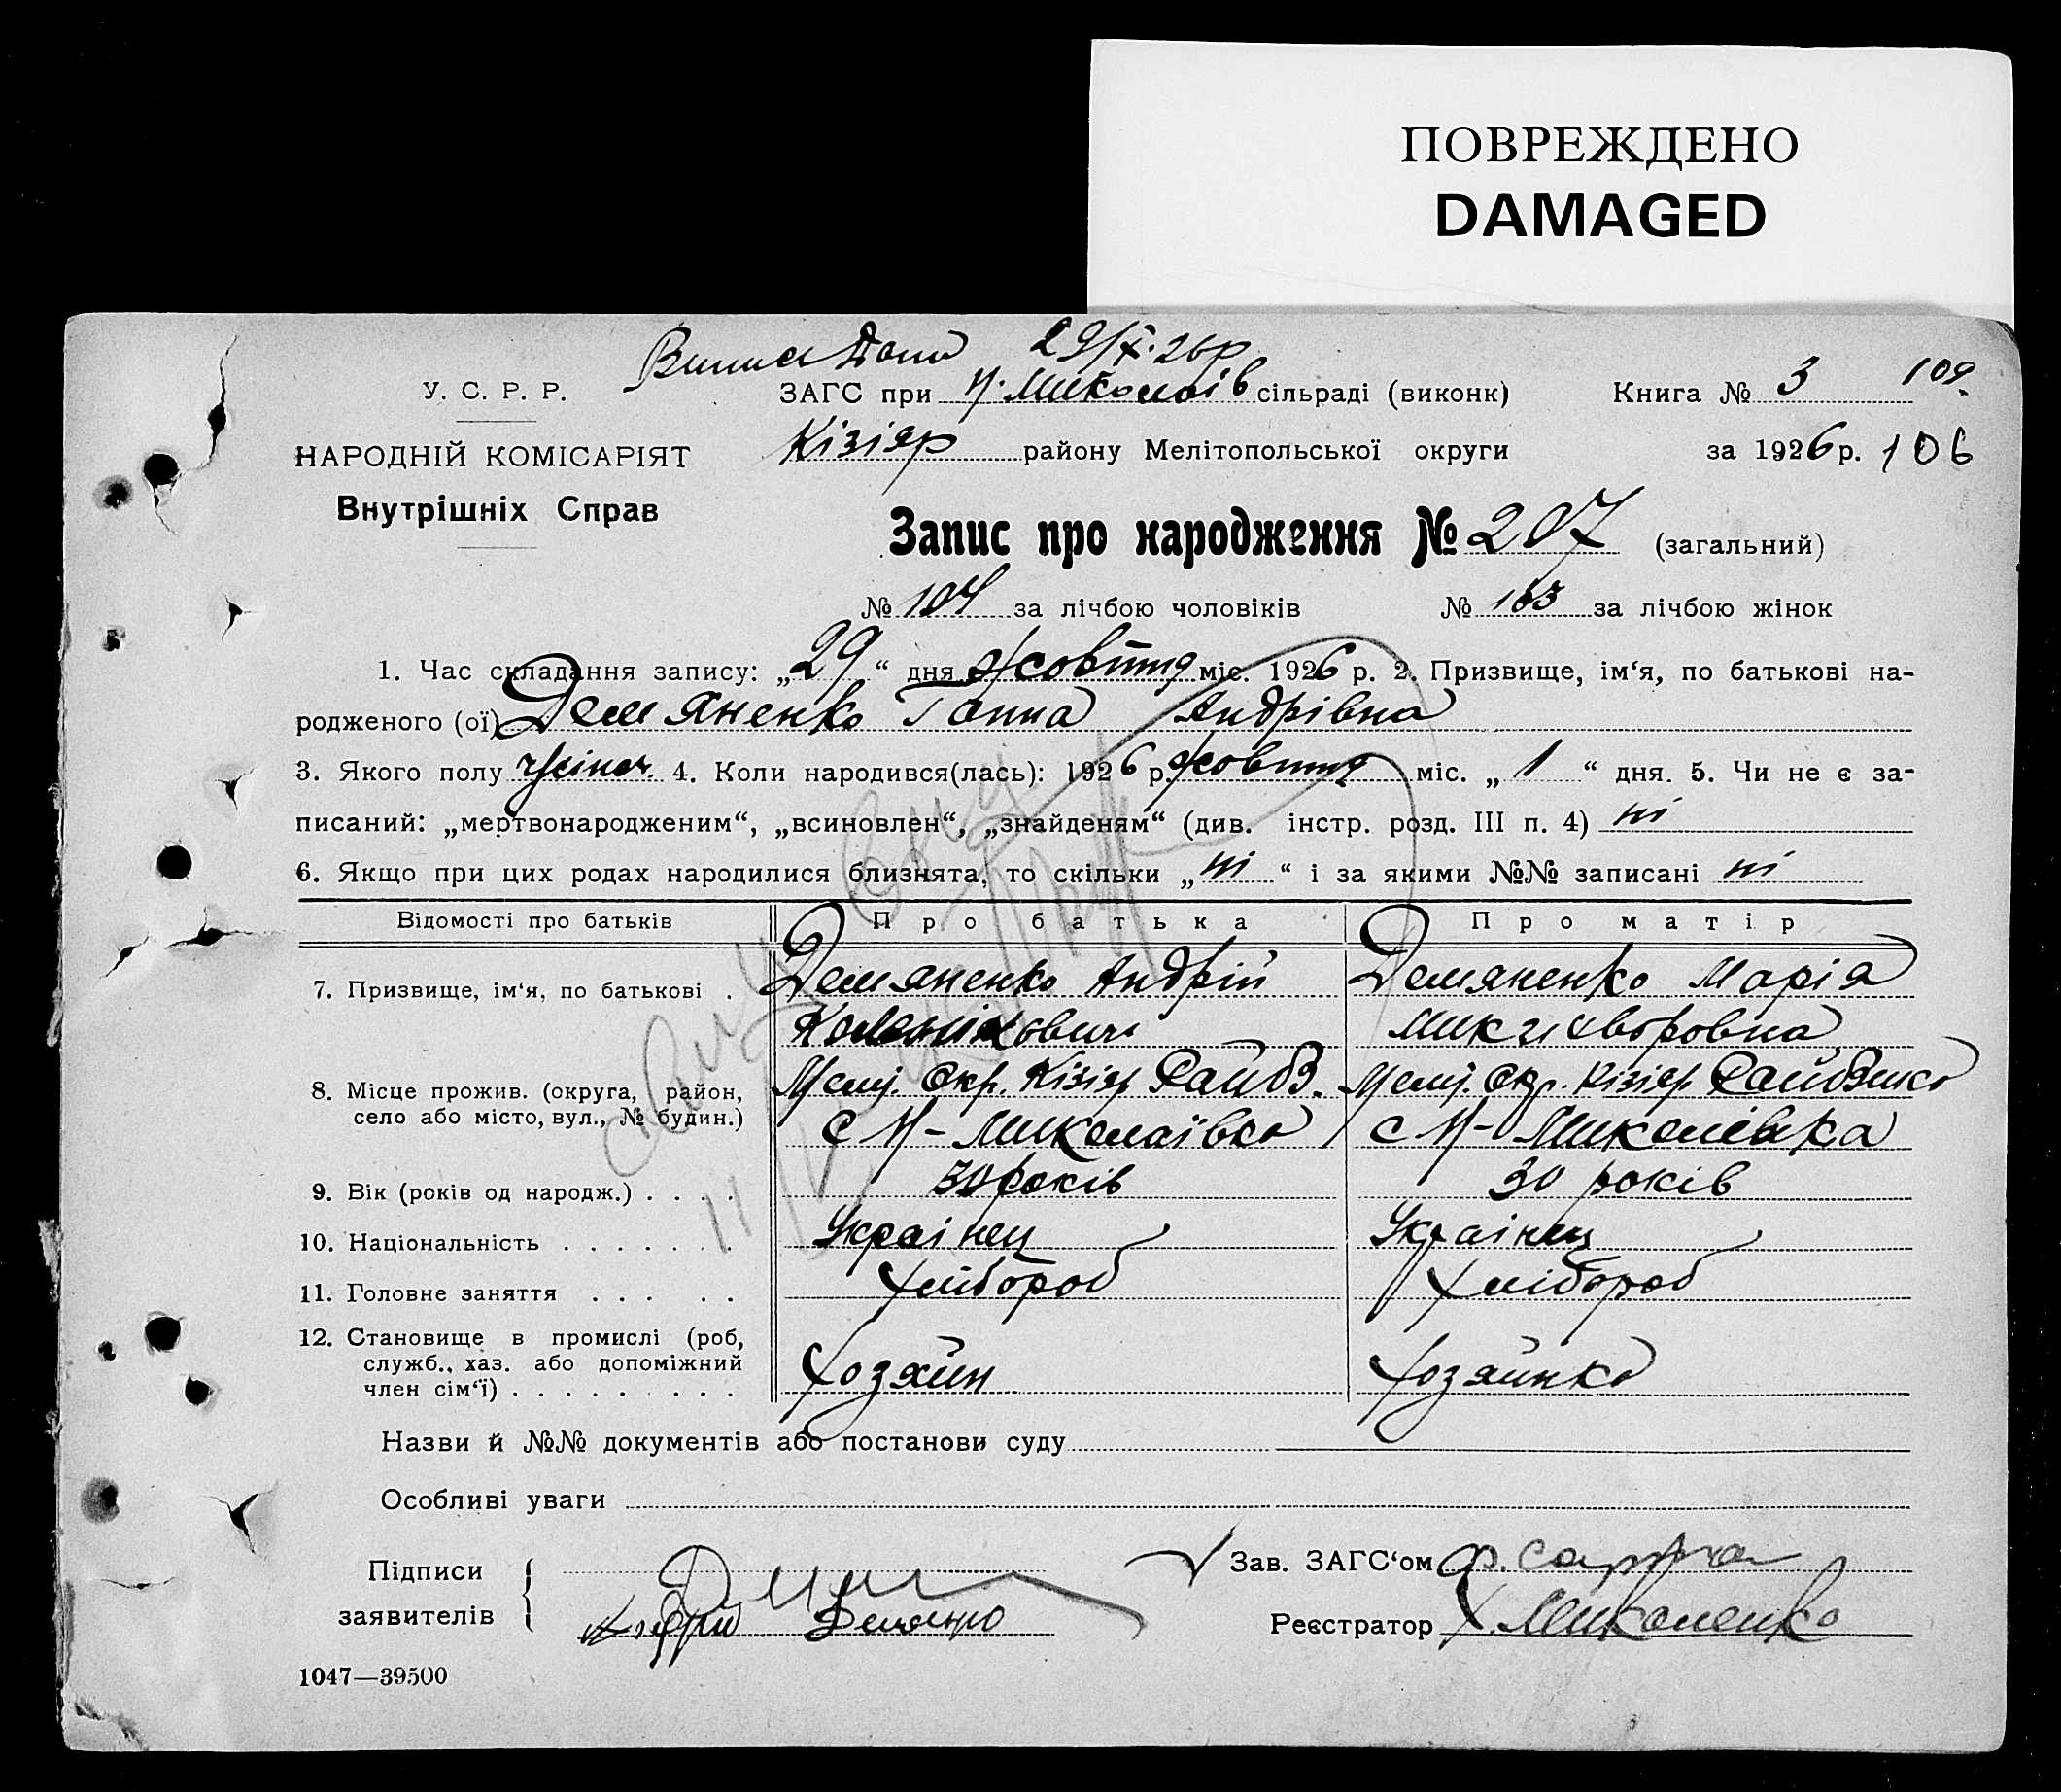 ПОВРЕЖДЕНО
DAMAGED
29/X. 26 р
У. С. Р. Р.
ЗАГС при Н. Миколаїв сільраді (виконк)
Книга № 3 109.
НАРОДНІЙ КОМІСАРІЯТ
Внутрішніх Справ
Кізіяр району Мелітопольської округи
за 1926 р. 106
Запис про народження № 207 (загальний)
№ 104 за лічбою чоловіків № 103 за лічбою жінок
1. Час складання запису: „29“ дня жовтня міс. 1926 р. 2. Призвище, ім‘я, по батькові на-
родженого (ої) Демяненко Ганна Андрівна
3. Якого полу жіноч. 4. Коли народився(лась): 1926 р. жовтня міс. „1“ дня. 5. Чи не є за-
писаний: „мертвонародженим“, „всиновлен“, „знайденям“ (див. інстр. розд. III п. 4) ні
6. Якщо при цих родах народилися близнята, то скільки „ні“ і за якими №№ записані ні
Відомості про батьків Про батька Про матір
7. Призвище, ім‘я, по батькові . Демяненко Андрій Демяненко Марія
8. Місце прожив. (округа, район, Мелі. Окр. Кізіяр Мелі. Окр. Кізіяр
село або місто, вул., № будин.) с Н-Миколаївка с Н-Миколівка
9. Вік (років од народж.) . . . . 30 років 30 років
10. Національність . . . . . . . Украінец Украінец
11. Головне заняття . . . . . Хлібороб Хлібороб
12. Становище в промислі (роб,
служб., хаз. або допоміжний
член сім‘ї) . . . . . . . . . Хозяин Хозяинка
Назви й №№ документів або постанови суду
Особливі уваги
Підписи
заявителів
Зав. ЗАГС‘ом
Реєстратор Миколенко
1047—39500